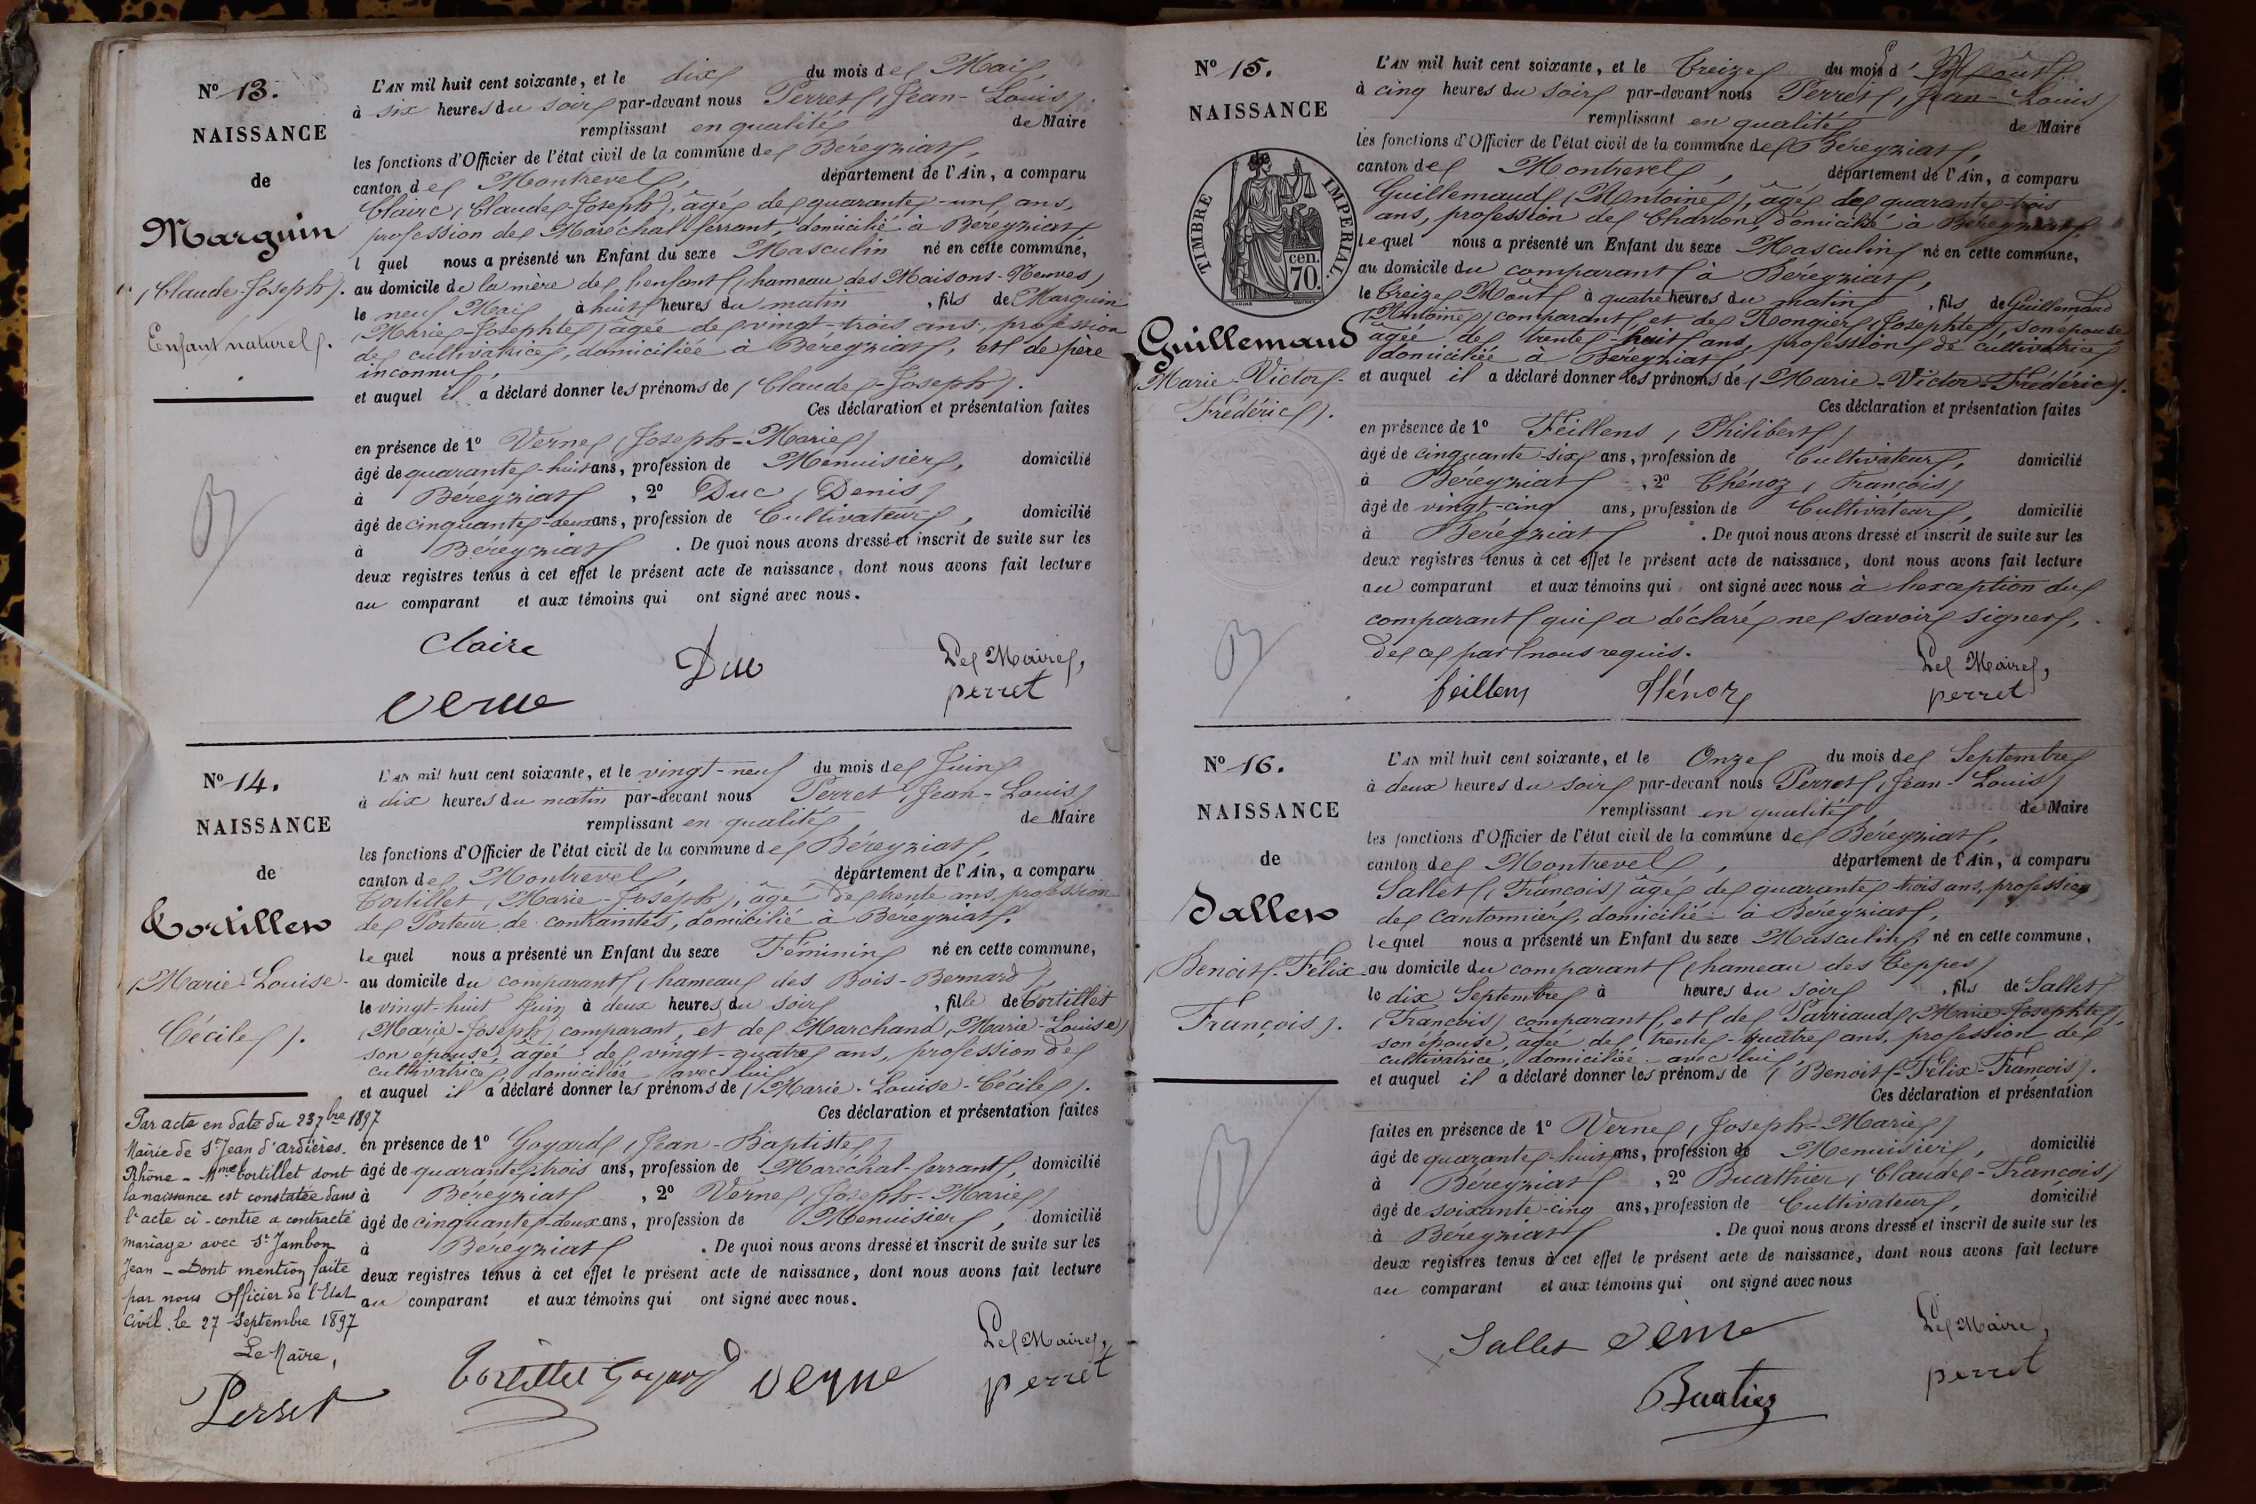 Nº 13.
NAISSANCE
de
Marguin
(Claude Joseph).
Enfant naturel.
L'AN mil huit cent soixante, et le dix du mois de Mai,
à six heures du soir par-devant nous Perret (Jean-Louis)
remplissant en qualité de Maire
les fonctions d'Officier de l'état civil de la commune de Béréyziat,
canton de Montrevel, département de l'Ain, a comparu
Claire (Claude-Joseph), âgé de quarante-un ans,
profession de Maréchal ferrant, domicilié à Béréyziat
l quel nous a présenté un Enfant du sexe Masculin né en cette commune,
au domicile de la mère de l'enfant (hameau des Maisons-Neuves)
le neuf Mai à huit heures du matin, fils de Marguin
(Marie-Josephte) âgée de vingt-trois ans, profession
de cultivatrice, domiciliée à Béréyziat, et de père
inconnu,
et auquel il a déclaré donner les prénoms de (Claude-Joseph).
Ces déclaration et présentation faites
en présence de 1º Verne (Joseph-Marie)
âgé de quarante-huit ans, profession de Menuisier, domicilié
à Béréyziat, 2º Duc (Denis)
âgé de cinquante-deux ans, profession de Cultivateur, domicilié
à Béréyziat. De quoi nous avons dressé et inscrit de suite sur les
deux registres tenus à cet effet le présent acte de naissance, dont nous avons fait lecture
au comparant et aux témoins qui ont signé avec nous.
Claire Duc Le Maire,
Verne perret
Nº 14.
NAISSANCE
de
Cortillet
(Marie-Louise-
Cécile).
L'AN mil huit cent soixante, et le vingt-neuf du mois de Juin
à dix heures du matin par-devant nous Perret (Jean-Louis)
remplissant en qualité de Maire
les fonctions d'Officier de l'état civil de la commune de Béréyziat,
canton de Montrevel, département de l'Ain, a comparu
Cortillet (Marie-Joseph), âgé de trente ans, profession
de Porteur de contraintes, domicilié à Béréyziat,
le quel nous a présenté un Enfant du sexe Féminin né en cette commune,
au domicile du comparant (hameau des Bois-Bernard),
le vingt-huit Juin à deux heures du soir, fille de Cortillet
(Marie-Joseph) comparant, et de Marchand (Marie-Louise)
son épouse, âgée de vingt-quatre ans, profession de
cultivatrice, domiciliée avec lui
et auquel il a déclaré donner les prénoms de (Marie-Louise-Cécile).
Ces déclaration et présentation faites
en présence de 1º Goyard (Jean-Baptiste)
âgé de quarante-trois ans, profession de Maréchal-ferrant, domicilié
à Béréyziat, 2º Verne (Joseph-Marie)
âgé de cinquante-deux ans, profession de Menuisier, domicilié
à Béréyziat. De quoi nous avons dressé et inscrit de suite sur les
deux registres tenus à cet effet le présent acte de naissance, dont nous avons fait lecture
au comparant et aux témoins qui ont signé avec nous.
Cortillet Goyard Verne Le Maire,
perret
Par acte en date du 23 7bre 1897
Mairie de St Jean d'Ardières.
Rhône - Mme Cortillet dont
la naissance est constatée dans
l'acte ci-contre a contracté
mariage avec Sr Jambon
Jean - Dont mention faite
par nous Officier de l'Etat
Civil le 27 Septembre 1897
Le Maire,
Perret
Nº 15.
NAISSANCE
TIMBRE IMPERIAL.
70. cen.
Guillemaud
Marie-Victor-
Frédéric).
L'AN mil huit cent soixante, et le treize du mois d'Août
à cinq heures du soir par-devant nous Perret (Jean-Louis)
remplissant en qualité de Maire
les fonctions d'Officier de l'état civil de la commune de Béréyziat,
canton de Montrevel, département de l'Ain, a comparu
Guillemaud (Antoine), âgé de quarante-trois
ans, profession de Charron, domicilié à Béréyziat,
lequel nous a présenté un Enfant du sexe Masculin né en cette commune,
au domicile du comparant à Béréyziat,
le treize Août à quatre heures du matin, fils de Guillemaud
(Antoine) comparant, et de Rongier (Josephte), son épouse
âgée de trente-huit ans, profession de cultivatrice
domiciliée à Béréyziat,
et auquel il a déclaré donner les prénoms de (Marie-Victor-Frédéric).
Ces déclaration et présentation faites
en présence de 1º Feillens (Philibert)
âgé de cinquante-six ans, profession de Cultivateur, domicilié
à Béréyziat, 2º Thénoz (François)
âgé de vingt-cinq ans, profession de Cultivateur, domicilié
à Béréyziat. De quoi nous avons dressé et inscrit de suite sur les
deux registres tenus à cet effet le présent acte de naissance, dont nous avons fait lecture
au comparant et aux témoins qui ont signé avec nous à l'exception du
comparant qui a déclaré ne savoir signer,
de ce par nous requis.
feillens Thénoz Le Maire,
perret
Nº 16.
NAISSANCE
de
Sallet
(Benoit-Félix-
François).
L'AN mil huit cent soixante, et le Onze du mois de Septembre
à deux heures du soir par-devant nous Perret (Jean-Louis)
remplissant en qualité de Maire
les fonctions d'Officier de l'état civil de la commune de Béréyziat,
canton de Montrevel, département de l'Ain, a comparu
Sallet (François) âgé de quarante-trois ans, profession
de cantonnier, domicilié à Béréyziat,
lequel nous a présenté un Enfant du sexe Masculin né en cette commune,
au domicile du comparant (hameau des Teppes)
le dix Septembre à heures du soir, fils de Sallet
(François) comparant, et de Parriaud (Marie-Josephte),
son épouse, âgée de trente-quatre ans, profession de
cultivatrice, domiciliée avec lui
et auquel il a déclaré donner les prénoms de (Benoit-Félix-François).
Ces déclaration et présentation
faites en présence de 1º Verne (Joseph-Marie)
âgé de quarante-huit ans, profession de Menuisier, domicilié
à Béréyziat, 2º Buathier (Claude-François)
âgé de soixante-cinq ans, profession de Cultivateur, domicilié
à Béréyziat. De quoi nous avons dressé et inscrit de suite sur les
deux registres tenus à cet effet le présent acte de naissance, dont nous avons fait lecture
au comparant et aux témoins qui ont signé avec nous
Sallet Verne Le Maire,
Buatier perret